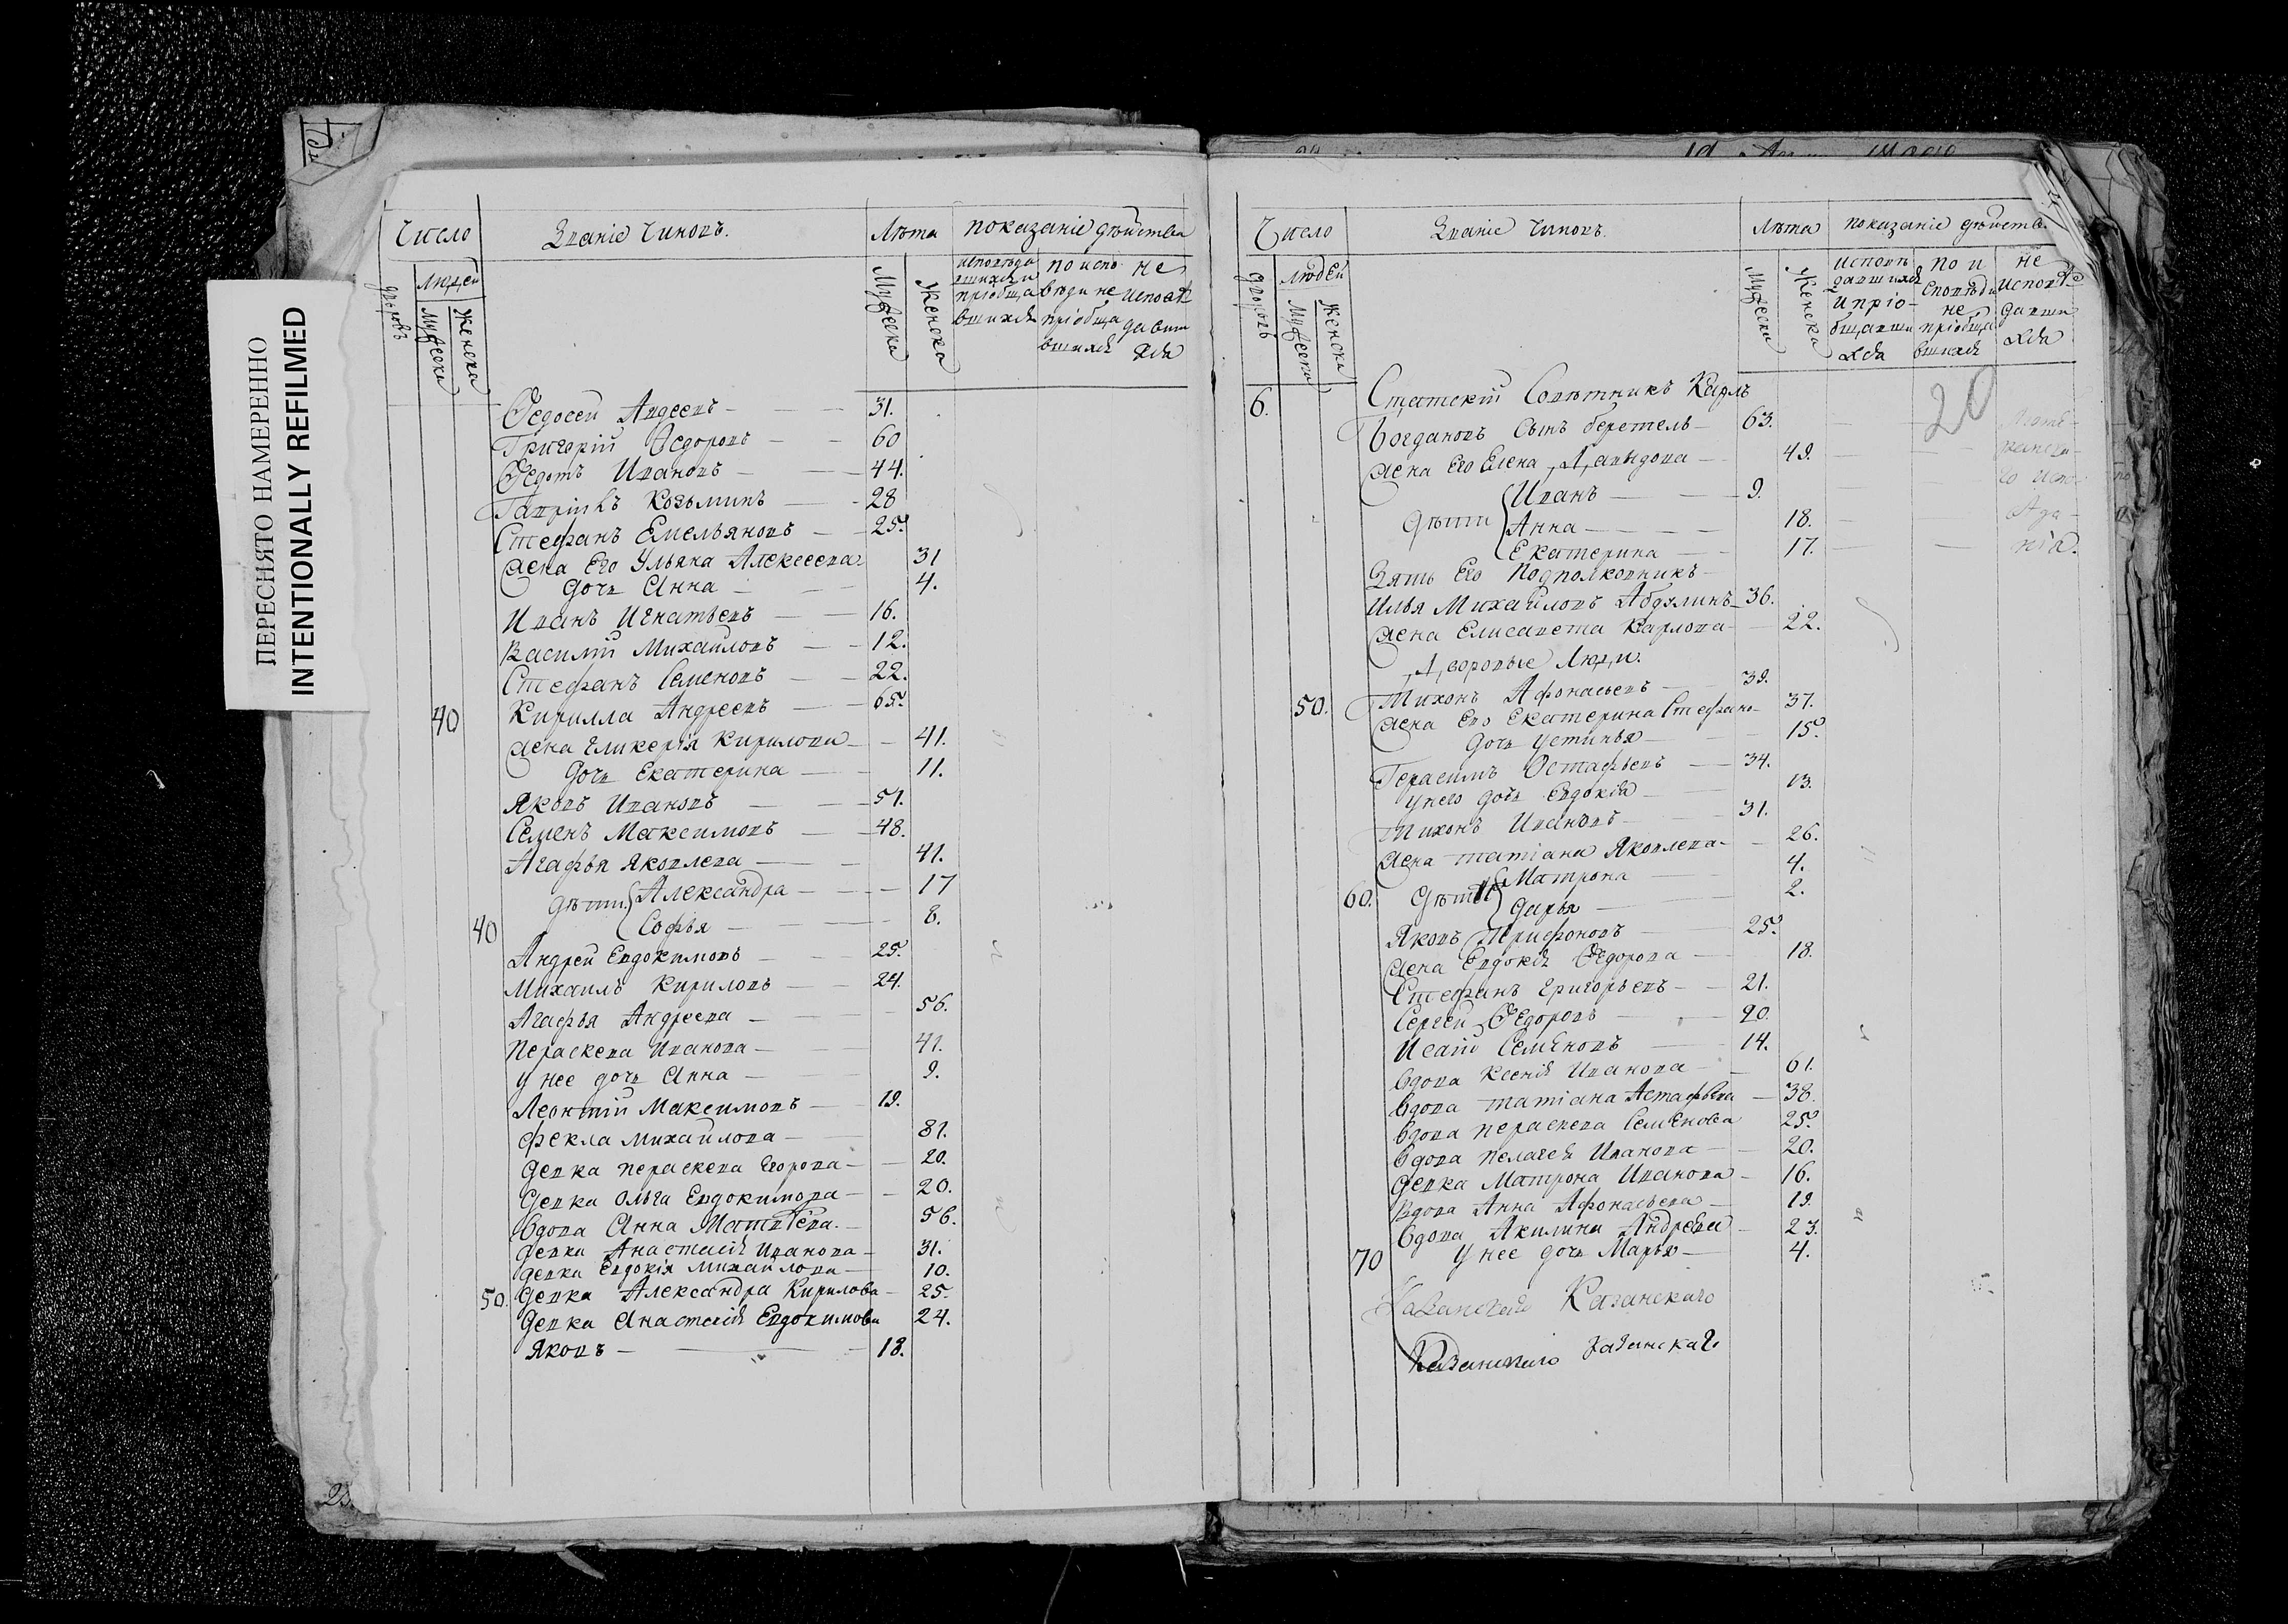 ПЕРЕСНЯТО НАМЕРЕННО
INTENTIONALLY REFILMED
Число Званіе Чиновъ. Лѣта показаніе дѣйства
дворовъ
людей
Мужеска
Женска
Мужеска
Женска
исповѣдавшихся и пріобщавшихся
по исповѣди не пріобщавшихся
не исповѣдавшихся
Ѳедосей Авдеевъ 31.
Григорій Ѳедоровъ 60
Ѳедотъ Ивановъ 44.
Гаврiилъ Козьминъ 28
Стефанъ Емельяновъ 25.
Жена Его Ульяна Алексеева 31
Дочь Анна 4.
Иванъ Игнатьевъ 16.
Василій Михайловъ 12.
Стефанъ Семеновъ 22.
40 Кирилла Андреевъ 65.
Жена Гликерія Кирилова 41.
Дочь Екатерина 11.
Яковъ Ивановъ 51.
Семенъ Максимовъ 48.
Агафья Яковлева 41.
Дѣти Александра 17
40 Софья 8.
Андрей Евдокимовъ 25.
Михаилъ Кириловъ 24.
Агафья Андреева 56.
Пераскева Иванова 41.
у нее дочь Анна 9.
Леонтій Максимовъ 19.
Фекла Михайлова 81.
Девка Пераскева Егорова 20.
Девка Ольга Евдокимова 20.
Вдова Анна Матвеева. 56.
Девка Анастасія Иванова 31.
Девка Евдокія Михайлова 10.
50. Девка Александра Кирилова 25.
Девка Анастасія Евдокимова 24.
Яковъ 18.
Число Званіе Чиновъ. Лѣта показаніе дѣйства
дворовъ
людей
Мужеска
Женска
Мужеска
Женска
исповѣдавшихся и пріобщавшихся
по исповѣди не пріобщавшихся
не исповѣдавшихся
20
6. Статскій Совѣтникъ Карлъ
Богдановъ Сынъ беретель 63.
Жена Его Елена Давыдова 49.
Иванъ 9.
Дѣти Анна 18.
Екатерина 17.
Зять Его Подполковникъ
Илья Михайловъ Абдулинъ 36.
Жена Елисавета Карлова 22.
Дворовые Люди.
50. Тихонъ Афонасьевъ 39.
Жена Его Екатерина Стефано 37.
Дочь Устинья 15.
Герасимъ Остафьевъ 34.
У него дочь Евдокія 13.
Тихонъ Ивановъ 31.
Жена Татіана Яковлева 26.
Матрона 4.
60. Дѣти Дарья 2.
Яковъ Трифоновъ 25.
Жена Евдокія Ѳедорова 18.
Стефанъ Григорьевъ 21.
Сергей Ѳедоровъ 20.
Исаій Семеновъ 14.
Вдова Ксенія Иванова 61.
Вдова Татіана Астафьева 38.
Вдова Пераскева Семенова 25.
Вдова Пелагея Иванова 20.
Девка Матрона Иванова 16.
Вдова Анна Афонасьева 19.
Вдова Акилина Андреева 23.
70 У нее дочь Марья 4.
Казанскаго Казанскаго
Казанскаго Казанскаго